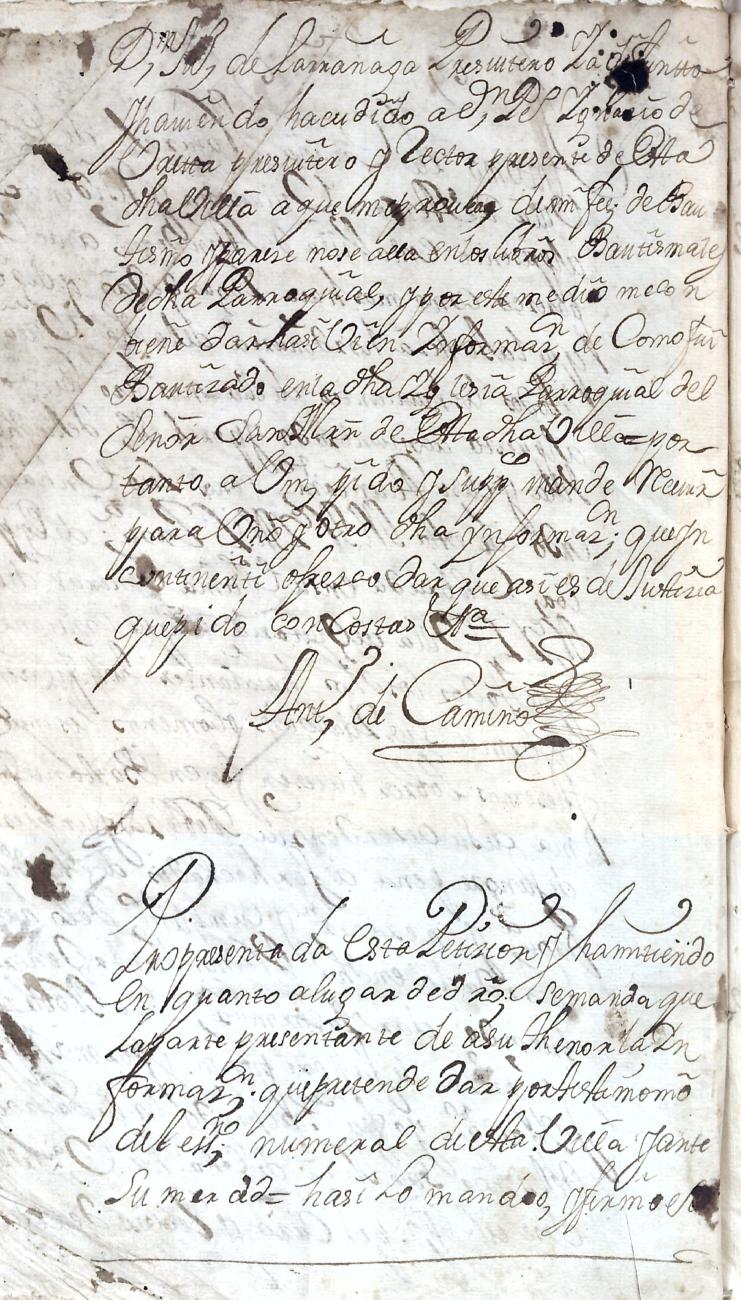 de Larrañaga Presvitero Ya difuntto
y haviendo hacudido a Dn Po Ygnacio de
presvitero y Rector presente de esta
dha Villa a que me provea de mi fee de Bau
tismo y parese no se alla en los libros Bautismales
de dha Parroquial, y por este medio me con
biene dar hasi vien Informazn de Como fui
Bautizado en la dha Yglesia Parroquial del
Señor San Mrn de esta dha Villa = por
tanto a Vm, pido y suppco mande Recivir
para Uno y otro dha ynformazn; que yn
continenti ofresco dar que asi es de Justizia
que pido con Costas Etta
Anto, de Camino
Por presentada esta Petizion y hamitiendo
en quanto a lugar de dro; se manda que
la parte presentante de a su thenor la In
formazn; que pretende dar por testimonio
del essno; numeral de esta Villa y ante
su merzd = hasi lo mando, y firmo